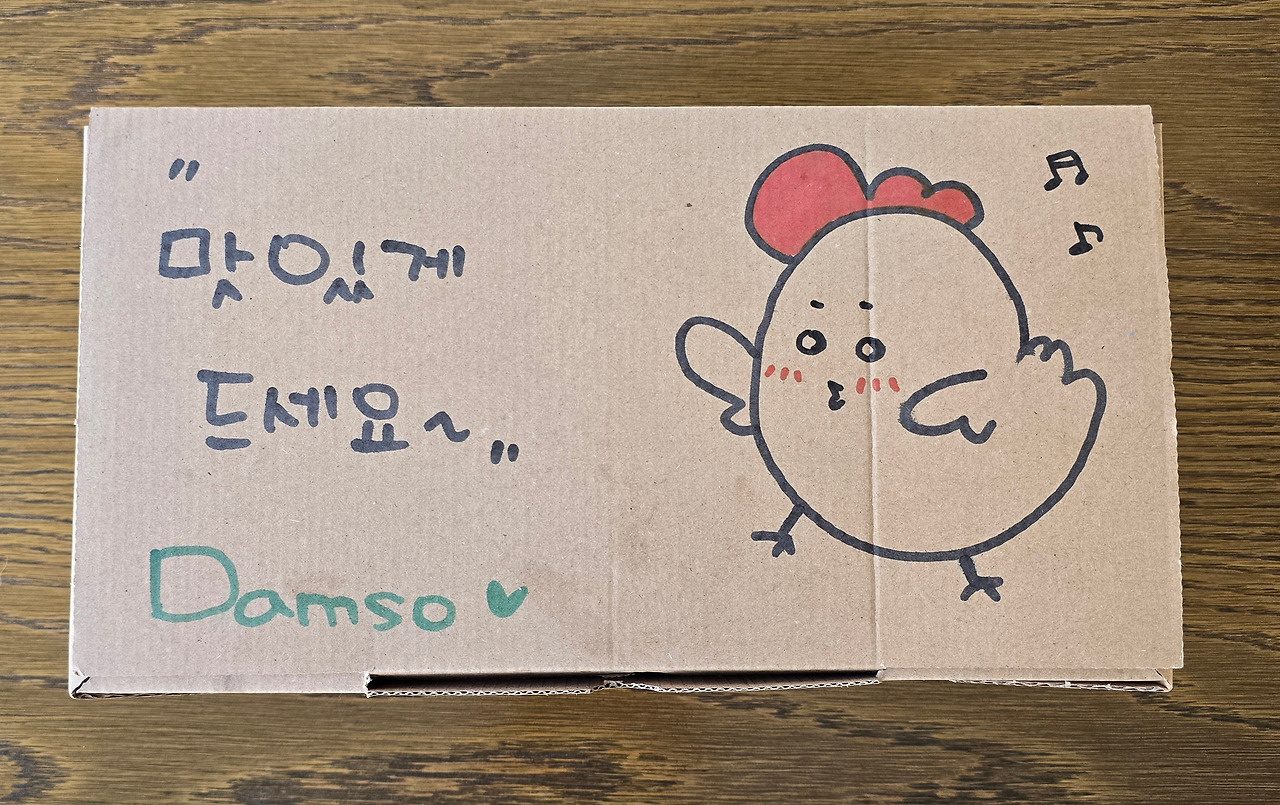 "
맛있게
드세요~"
Damso ♥